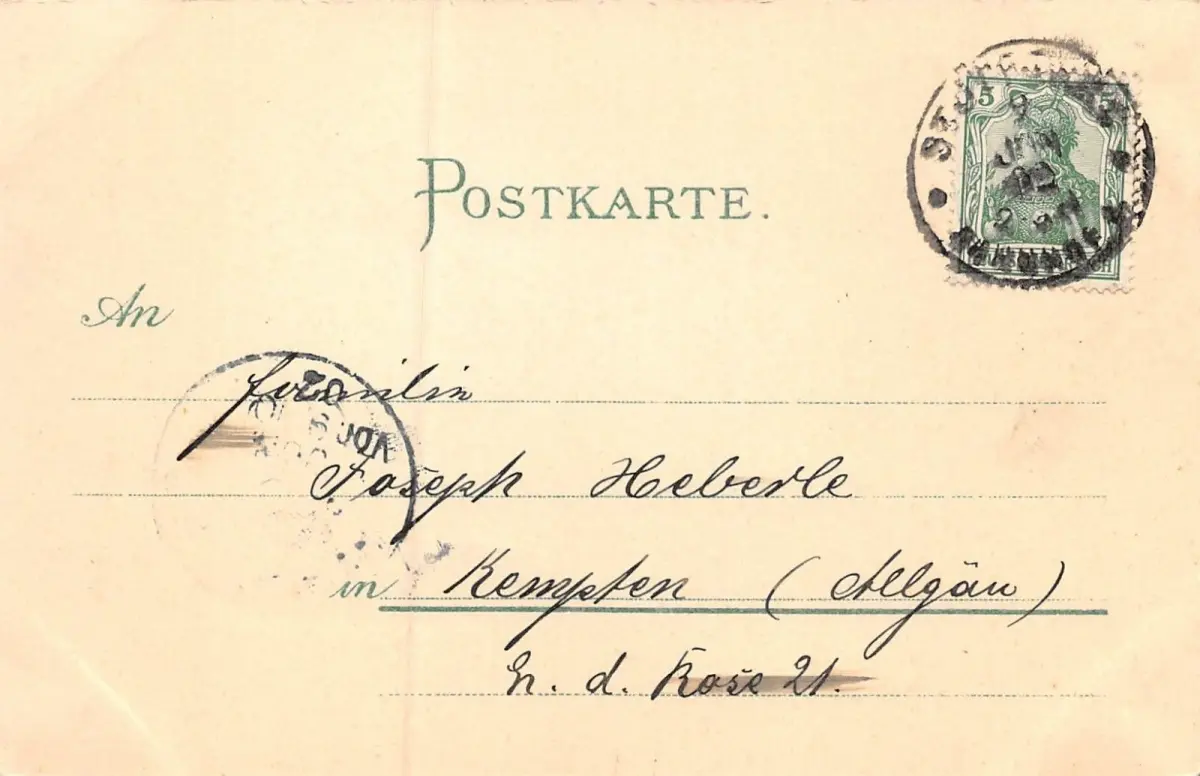 POSTKARTE.
5 5
An
Familie
Joseph Heberle
in Kempten (Allgäu)
h. d. Rose 21.